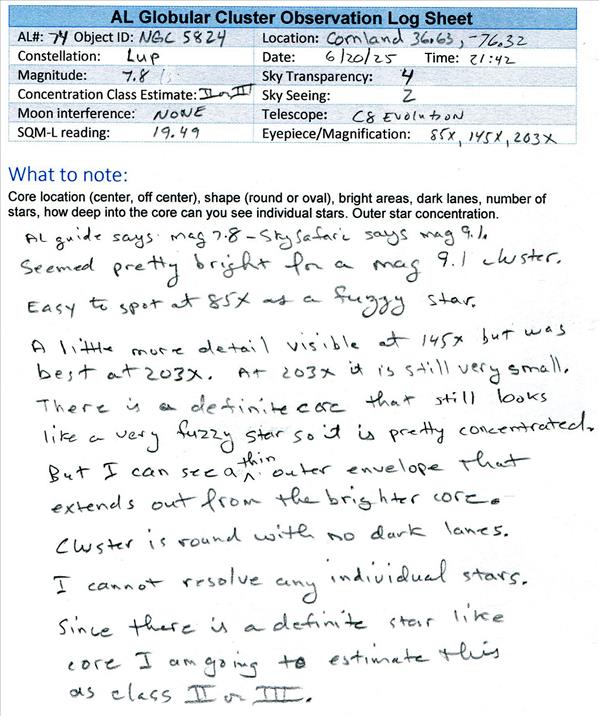 AL Globular Cluster Observation Log Sheet
AL#: 74 Object ID: NGC 5824 Location: Cornland 36.63, -76.32
Constellation: Lup Date: 6/20/25 Time: 21:42
Magnitude: 7.8 Sky Transparency: 4
Concentration Class Estimate: II or III Sky Seeing: 2
Moon interference: NONE Telescope: C8 Evolution
SQM-L reading: 19.49 Eyepiece/Magnification: 85x, 145x, 203x
What to note:
Core location (center, off center), shape (round or oval), bright areas, dark lanes, number of
stars, how deep into the core can you see individual stars. Outer star concentration.
AL guide says mag 7.8 - SkySafari says mag 9.1.
Seemed pretty bright for a mag 9.1 cluster.
Easy to spot at 85x as a fuzzy star.
A little more detail visible at 145x but was
best at 203x. At 203x it is still very small.
There is a definite core that still looks
like a very fuzzy star so it is pretty concentrated.
But I can see a thin outer envelope that
extends out from the brighter core.
Cluster is round with no dark lanes.
I cannot resolve any individual stars.
Since there is a definite star like
core I am going to estimate this
as class II or III.